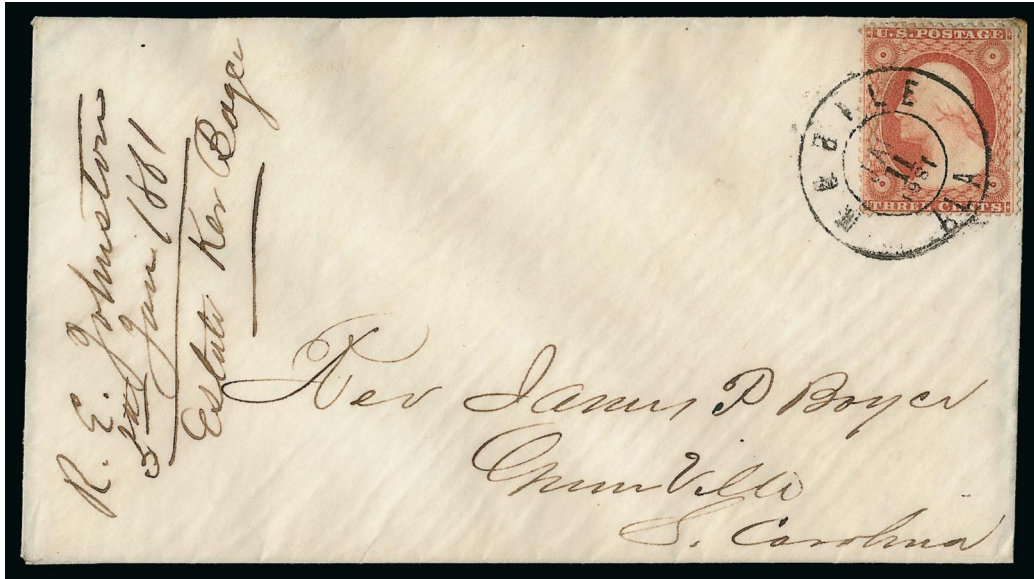 R. E. Johnston
5th Jan 1861
Estate Ker Boyce
U.S. POSTAGE
THREE CENTS
MOBILE ALA
11
1861
Rev James P Boyce
GreenVille
S. Carolina